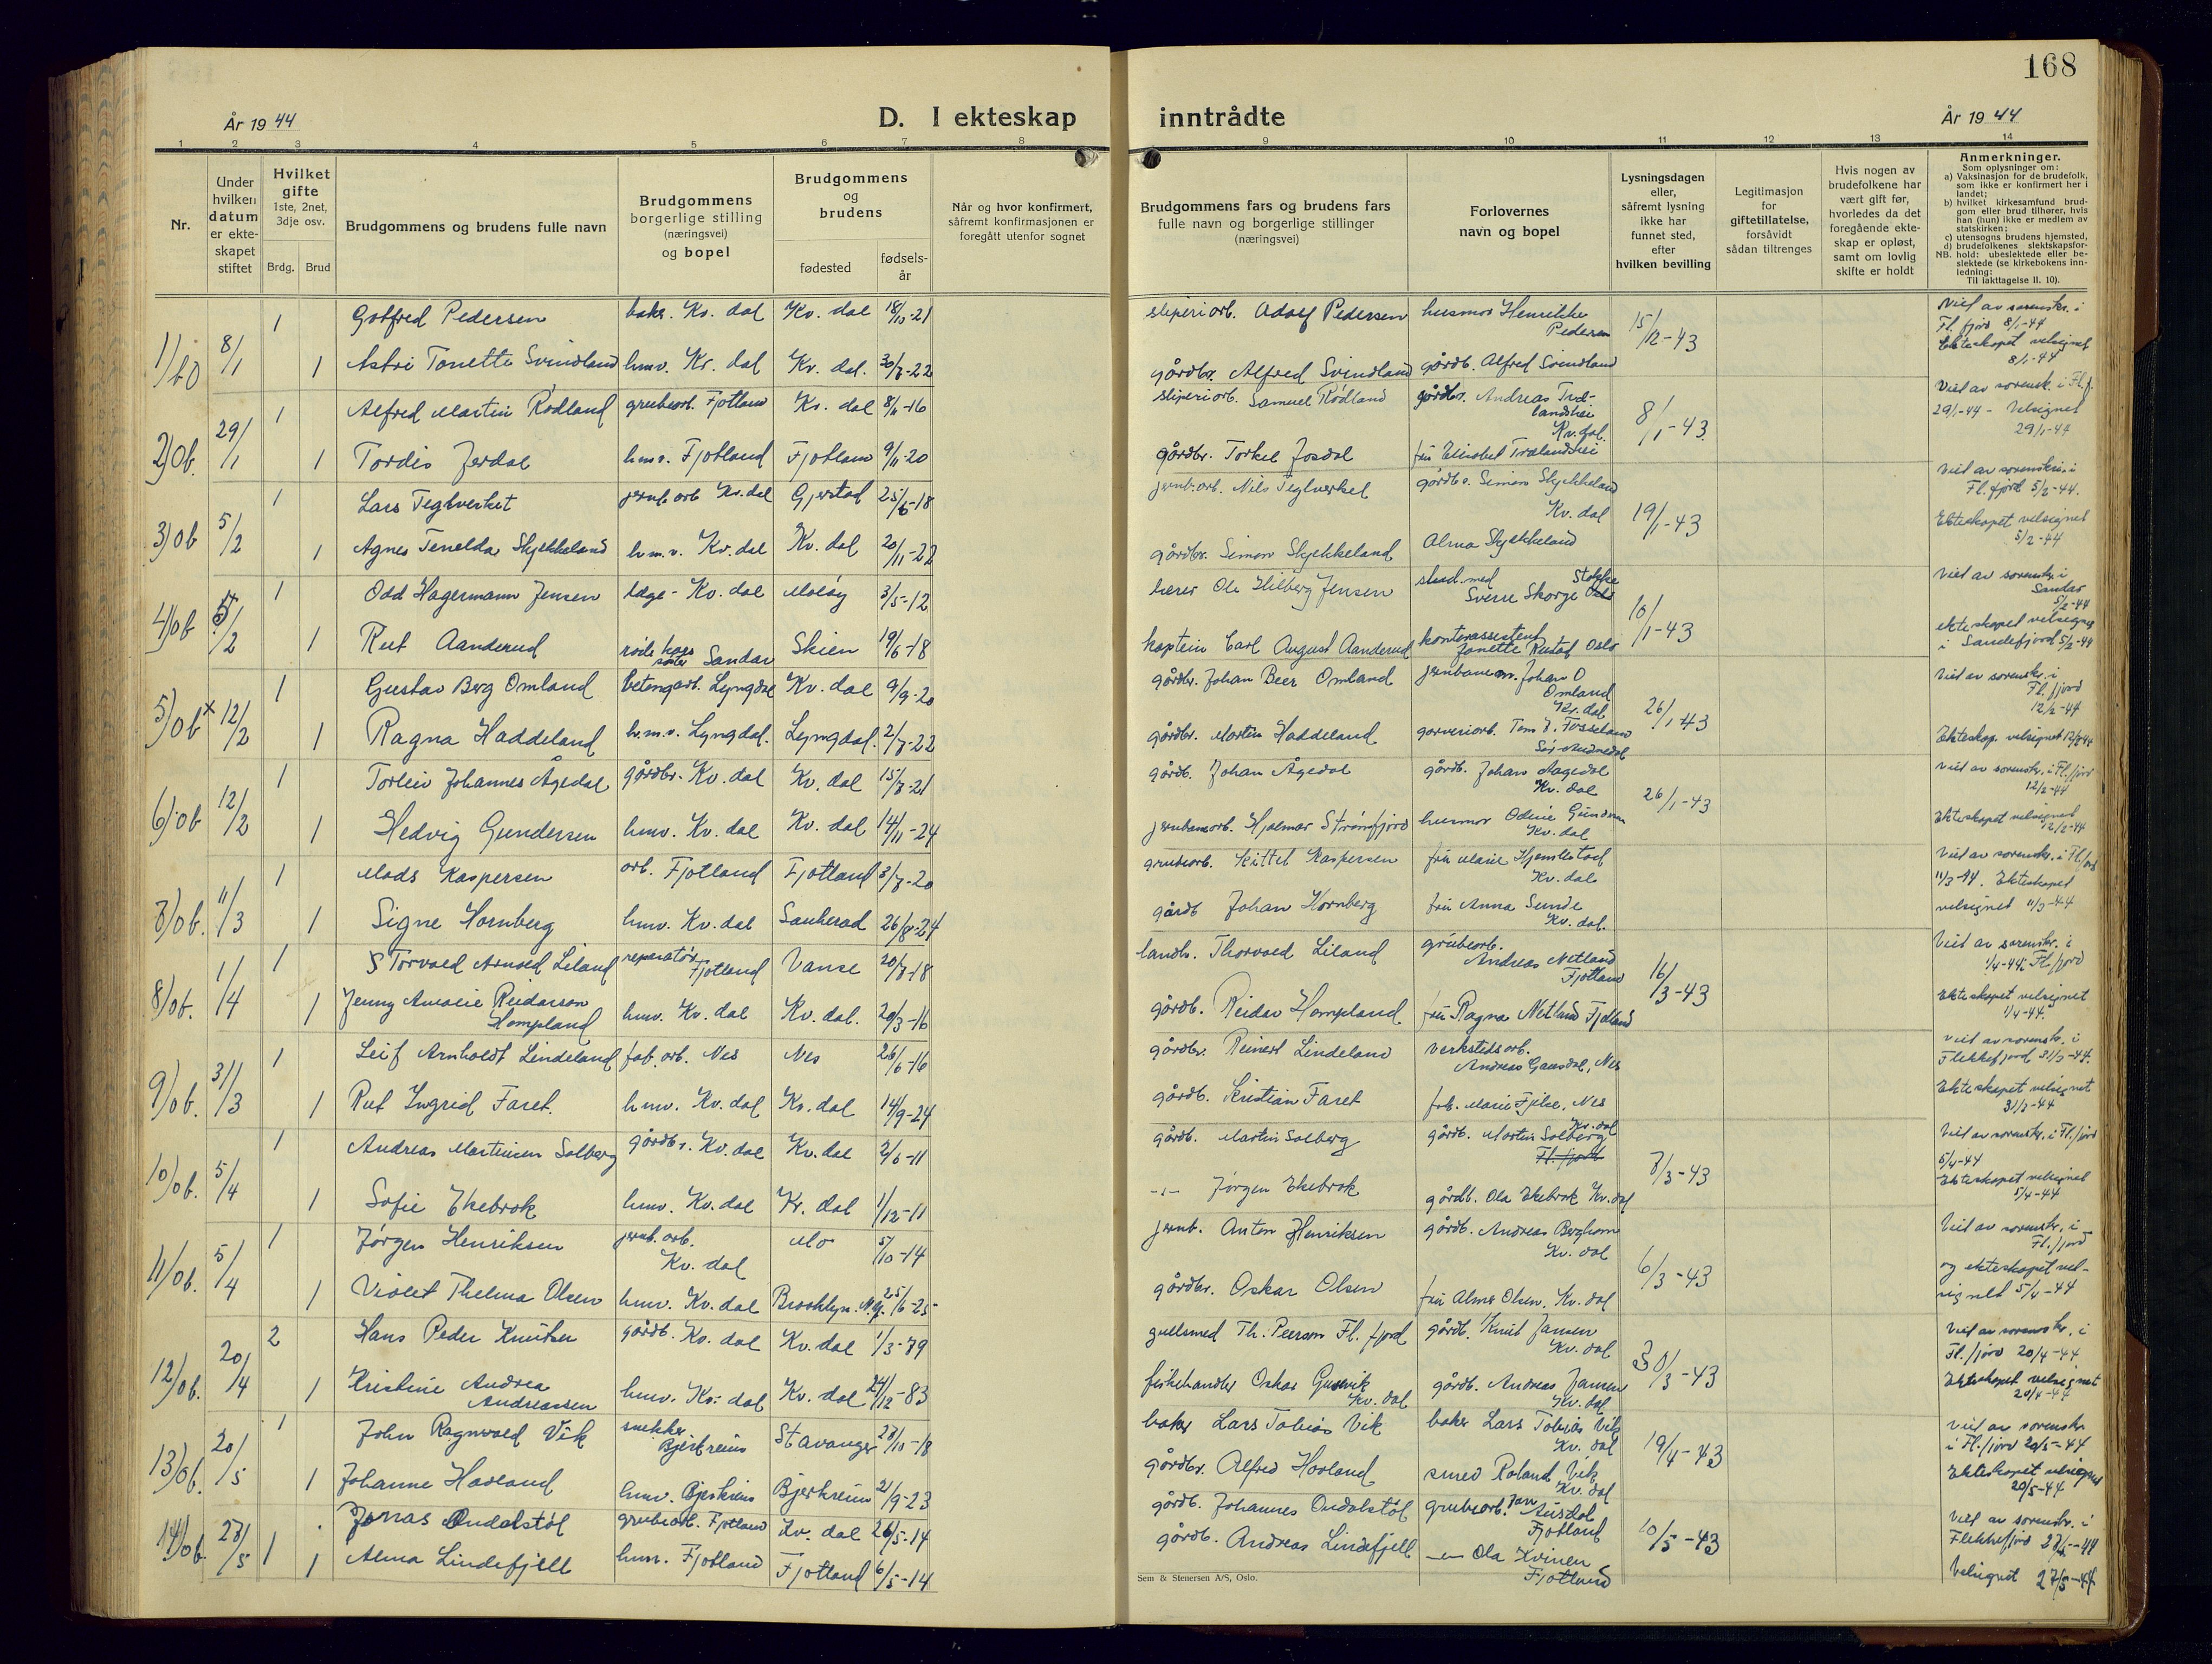 168
År 1944
D. I ekteskap inntrådte
År 1944
1 2 3 4 5 6 7 8 9 10 11 12 13 14
Nr.
Under hvilken datum er ekteskapet stiftet
Hvilket gifte 1ste, 2net, 3dje osv.
Brdg. Brud
Brudgommens og brudens fulle navn
Brudgommens borgerlige stilling (næringsvei) og bopel
Brudgommens og brudens
fødested
fødselsår
Når og hvor konfirmert, såfremt konfirmasjonen er foregått utenfor sognet
Brudgommens fars og brudens fars fulle navn og borgerlige stillinger (næringsvei)
Forlovernes navn og bopel
Lysningsdagen eller, såfremt lysning ikke har funnet sted, efter hvilken bevilling
Legitimasjon for giftetillatelse, forsåvidt sådan tiltrenges
Hvis nogen av brudefolkene har vært gift før, hvorledes da det foregående ekteskap er opløst, samt om lovlig skifte er holdt
Anmerkninger.
Som oplysninger om:
a) Vaksinasjon for de brudefolk, som ikke er konfirmert her i landet;
b) hvilket kirkesamfund brudgom eller brud tilhører, hvis han (hun) ikke er medlem av statskirken;
c) utensogns brudens hjemsted,
d) brudefolkenes slektskapsforhold: ubeslektede eller beslektede (se kirkebokens innledning:
NB. Til iakttagelse II. 10).
1/ob 8/1 1 Gotfred Pedersen baker. Kv. dal Kv. dal 18/10-21 sliperiarb. Adolf Pedersen husmor Henrikke Pedersen 15/12-43 Viet av sorenskr. i Fl. fjord 8/1-44
1 Astri Tonette Svindland hmv. Kv. dal Kv. dal. 30/7-22 gårdbr. Alfred Svindland gårdb. Alfred Svindland Ekteskapet velsignet 8/1-44
2/ob. 29/1 1 Alfred Martin Rødland grubearb. Fjotland Kv. dal 8/11-16 sliperiarb. Samuel Rødland gårdbr. Andreas Trælandshei Kv. dal. 8/1-43 Viet av sorensk. i Fl. f. 29/1-44 - Velsignet 29/1-44
1 Tordis Jerdal hmv. Fjotland Fjotland 9/11-20 gårdbr. Torkel Josdal fru Elisabet Trælandshei
3/ob 5/2 1 Lars Teglverket jernb. arb Kv. dal Gjerstad 25/6-18 jernb. arb. Nils Teglverket gårdbr. Simon Skjekkeland Kv. dal 19/1-43 Viet av sorenskr. i Fl. fjord 5/2-44.
1 Agnes Tenelda Skjekkeland h.m.v. Kv. dal Kv. dal 20/11-22 gårdbr. Simon Skjekkeland Alma Skjekkeland Ekteskapet velsignet 5/2-44
4/ob 5/2 1 Odd Hagermann Jensen læge - Kv. dal Måløy 3/5-12 lærer Ole Hilberg Jensen stud. med Sverre Skorge Stokke 10/1-43 Viet av sorenskr. i Sandar 5/2-44
1 Rut Aanderud røde kors søster Sandar Skien 19/6-18 kaptein Carl August Aanderud kontorassistent Janette Rustøf Oslo ekteskapet velsignet i Sandefjord 5/2-44
5/ob x 12/2 1 Gustav Berg Omland betongarb. Lyngdal Kv. dal 9/9-20 gårdbr. Johan Beer Omland jernbanem. Johan O Omland Kv. dal 26/1-43 Viet av sorenskr. i Fl. fjord 12/2-44
1 Ragna Haddeland h.m.v. Lyngdal. Lyngdal. 2/7-22 gårdbr. Martin Haddeland garveriarb. Tom J. Fosseland Sør-Audnedal Ekteskap. velsignet 12/2-44
6/ob 12/2 1 Torleiv Johannes Ågedal gårdbr. Kv. dal Kv. dal 15/7-21 gårdb. Johan Ågedal gårdb. Johan Aagedal Kv. dal 26/1-43 Viet av sorenskr. i Fl. fjord 12/2-44
1 Hedvig Gundersen hmv. Kv. dal Kv. dal 14/11-24 jernbanearb. Hjalmar Strømfjord husmor Odine Gundersen Kv. dal Ekteskapet velsignet 12/2-44
7/ob. 11/3 1 Mads Kaspersen arb. Fjotland Fjotland 3/7-20 grubearb. Kittel Kaspersen fru Marie Hjemlestad Kv. dal. Viet av sorenskr. i Fl. fjord 11/3-44. Ekteskapet
1 Signe Hornberg hmv. Kv. dal Sauherad 26/8-24 gårdb Johan Hornberg fru Anna Sunde Kv. dal. velsignet 11/3-44
8/ob. 1/4 1 S Torvald Arnold Liland reparatør Fjotland Vanse 20/7-18 landbr. Thorvald Liland grubearb. Andreas Netland Fjotland 16/3-43 Viet av sorenskr. i 1/4-44 Fl. fjord
1 Jenny Amalie Reidarson Hompland hmv. Kv. dal Kv. dal. 20/3-16 gårdb. Reidar Hompland fru Ragna Netland Fjotland Ekteskapet velsignet 1/4-44.
9/ob. 31/3 1 Leif Arnholdt Lindeland fab. arb. Nes Nes 26/6-16 gårdbr. Reinert Lindeland verkstedsarb. Andreas Gausdal, Nes Viet av sorenskr. i Flekkefjord 31/3-44.
1 Rut Ingrid Faret. hmv. Kv. dal Kv. dal 14/9-24 gårdb. Kristian Faret frk. Marie Fjelse, Nes Ekteskapet velsignet 31/3-44
10/ob. 5/4 1 Andreas Martinsen Solberg gårdbr. Kv. dal Kv. dal 2/6-11 gårdb. Martin Solberg gårdb. Martin Solberg Kv. dal Fl. fjord 7/3-43 Viet av sorenskr. i Fl. fjord 5/4-44
1 Sofie Ekebrok hmv. Kv. dal Kv. dal 1/12-11 -"- Jørgen Ekebrok gårdb. Ola Ekebrok Kv. dal Ekteskapet velsignet 5/4-44
11/ob. 5/4 1 Jørgen Henriksen jernb. arb. Kv. dal Mo 5/10-14 jernb. Anton Henriksen gårdb. Andreas Berghom Kv. dal 6/3-43 Viet av sorenskr. i Fl. fjord
1 Violet Thelma Olsen hmv. Kv. dal Brooklyn. N.Y. 25/6-25 gårdbr. Oskar Olsen fru Alma Olsen. Kv. dal og ekteskapet velsignet 5/4-44
12/ob. 20/4 2 Hans Peder Knutsen gårdb. Kv. dal Kv. dal 1/3-79 gullsmed Th. Peerson Fl. fjord gårdb. Knut Jansen Kv. dal 30/3-43 Viet av sorenskr. i Fl. fjord 20/4-44
1 Kristine Andrea Andreassen hmv. Kv. dal Kv. dal 24/12-83 fiskehandler Oskar Gusevik Kv. dal gårdb. Andreas Jansen Kv. dal Ekteskapet velsignet 20/4-44
13/ob. 20/5 1 John Ragnvald Vik snekker Bjerkreim Stavanger 23/10-18 baker Lars Tobias Vik baker Lars Tobias Vik Kv. dal 19/4-43 Viet av sorenskr. i Fl. fjord 20/5-44
1 Johanne Hovland hmv. Bjerkreim Bjerkreim 21/9-23 gårdbr. Alfred Hovland smed Roland Vik Kv. dal Ekteskapet velsignet 20/5-44
14/ob. 27/5 1 Jonas Ondalstøl grubearb. Fjotland Kv. dal 26/5-14 gårdb. Johannes Ondalstøl grubearb. Jan Aüsdal Fjotland 10/5-43 Viet av sorenskr. i Flekkefjord 27/5-44
1 Alma Lindefjell hmv. Fjotland Fjotland 6/5-14 gårdb. Andreas Lindefjell -"- Ola Kvinen Fjotland Velsignet 27/5-44
Sem & Stenersen A/S, Oslo.